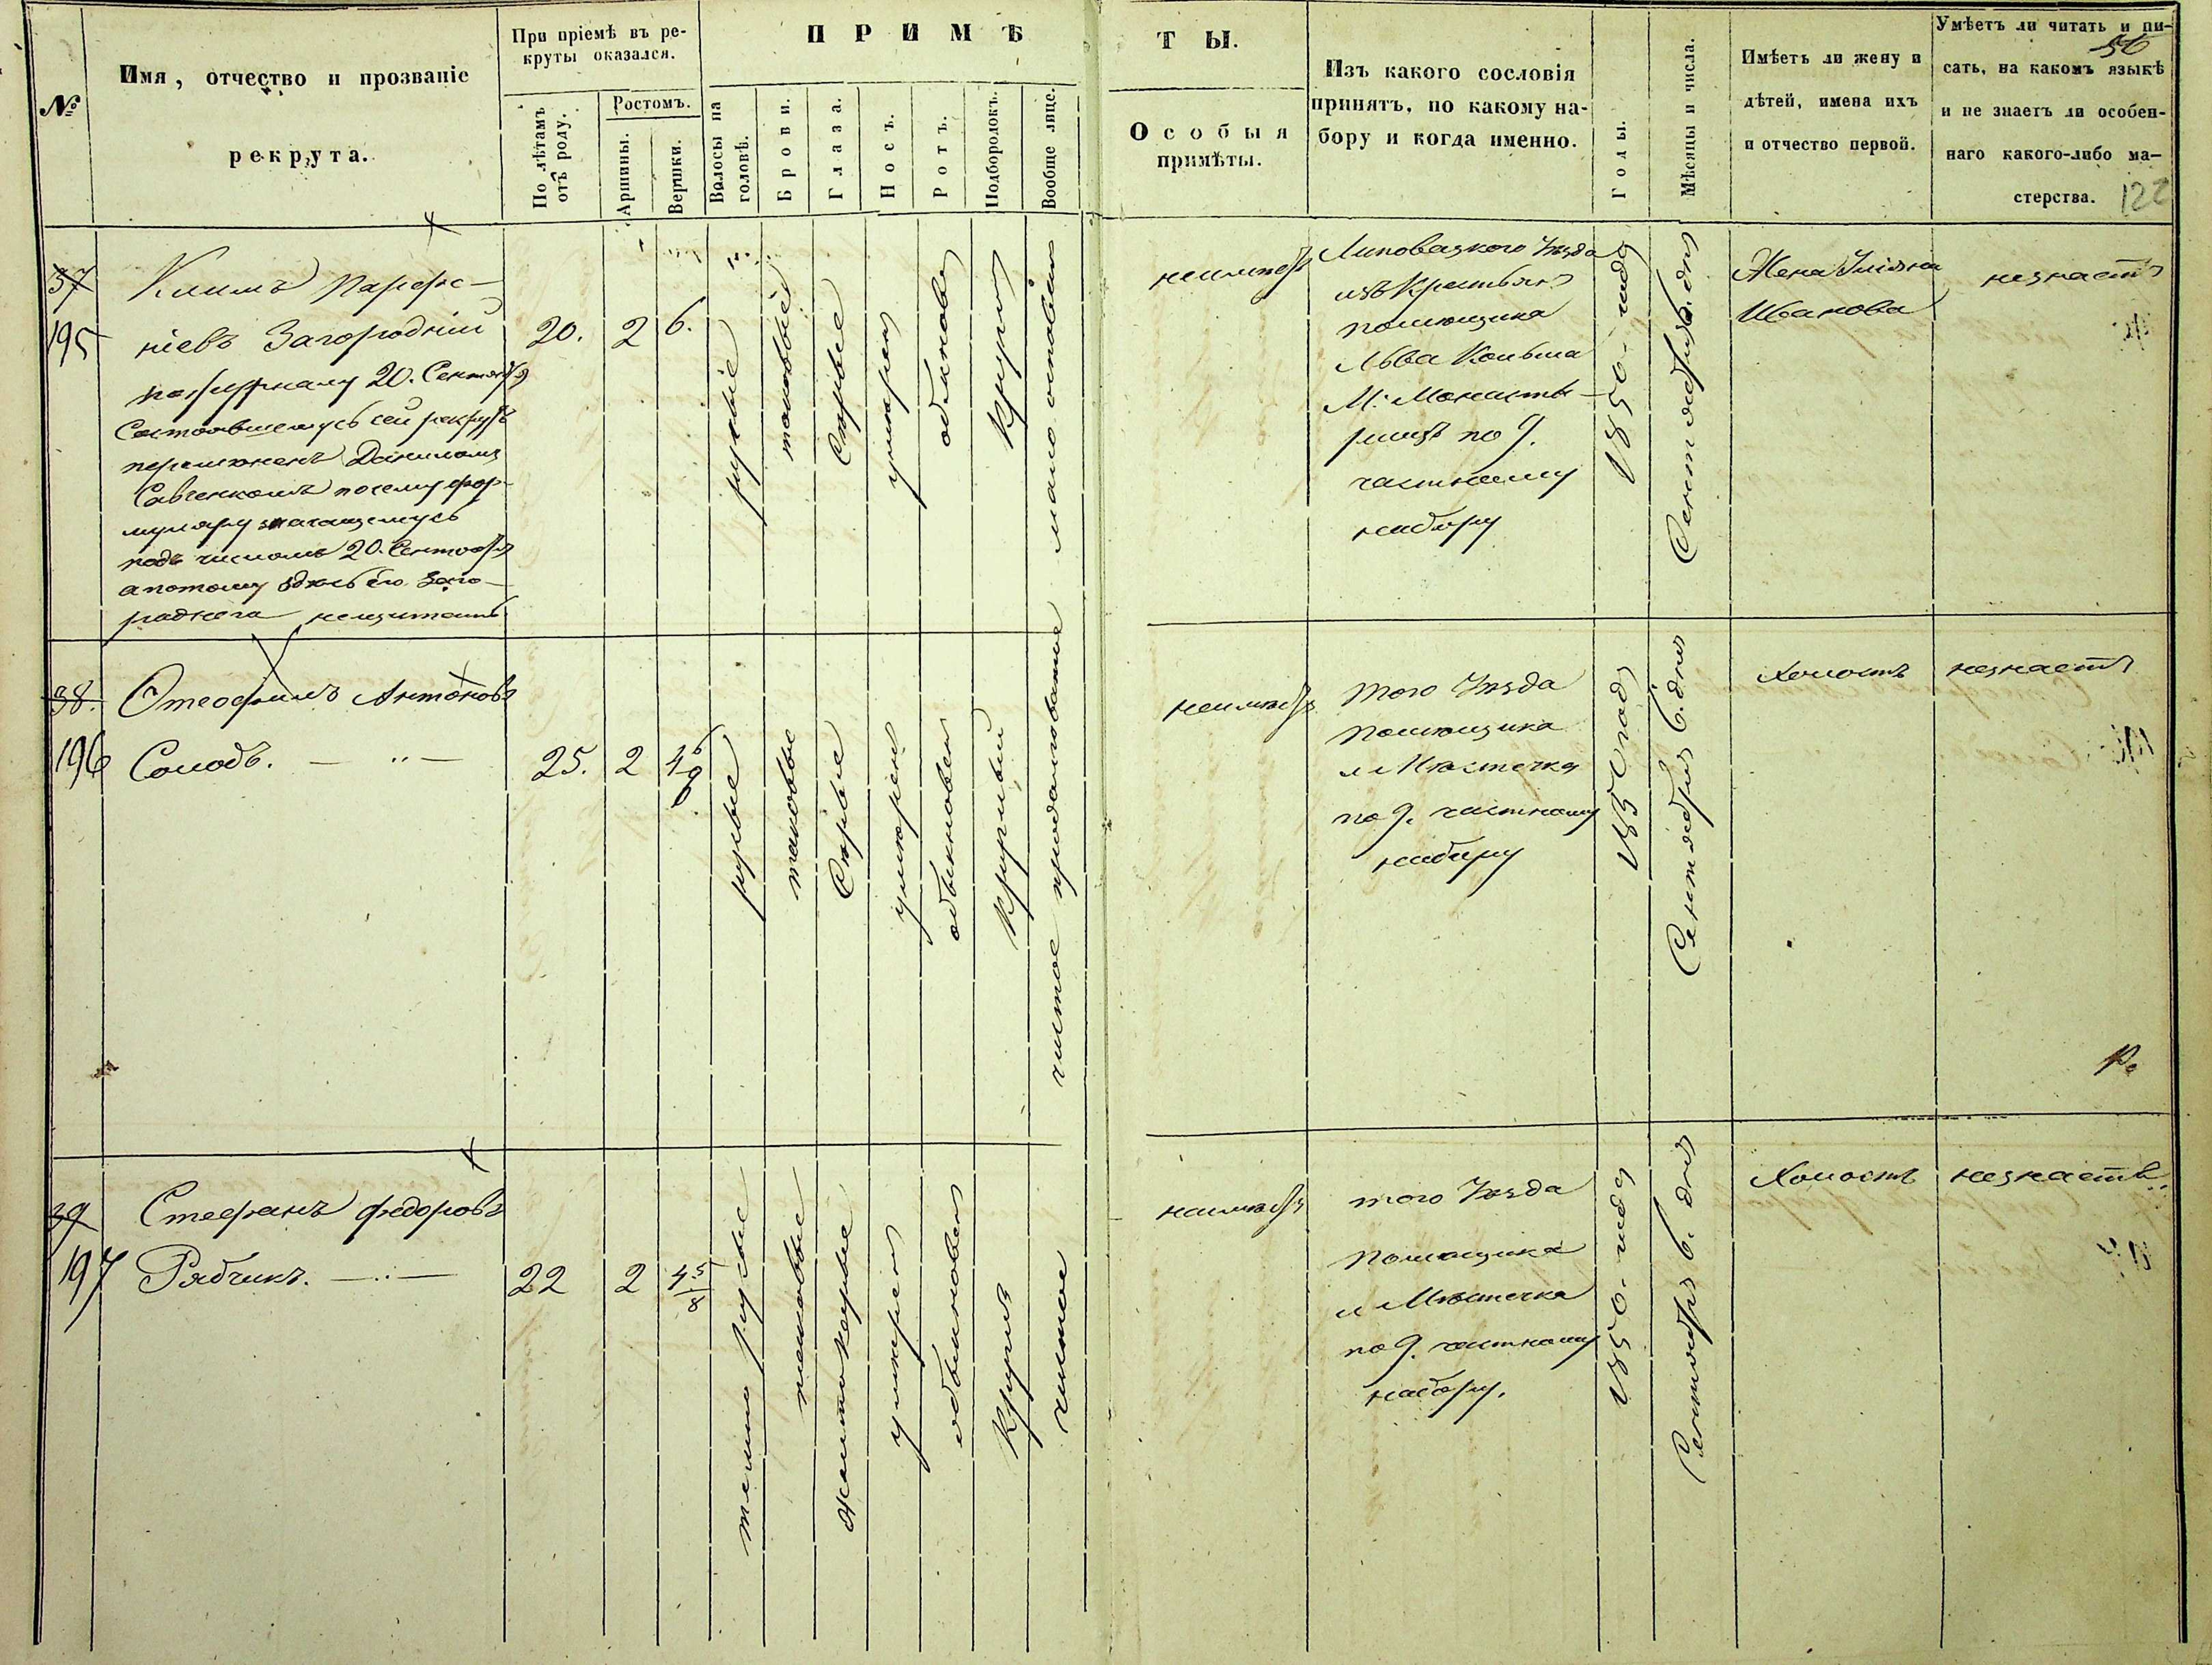 П Р И М Ѣ Т Ы.
№
Имя, отчество и прозваніе
рекрута.
При пріемѣ въ ре-
круты оказался.
По лѣтамъ
отъ роду.
Ростомъ.
Аршины.
Вершки.
Волосы на
головѣ.
Брови.
Глаза.
Носъ.
Ротъ.
Подбородокъ.
Вообще лице.
Особыя
примѣты.
Изъ какого сословія
принятъ, по какому на-
бору и когда именно.
Годы.
Мѣсяцы и числа.
Имѣетъ ли жену и
дѣтей, имена ихъ
и отчество первой.
Умѣетъ ли читать и пи-
сать, на какомъ языкѣ
и не знаетъ ли особен-
наго какого-либо ма-
стерства.
56
122
37
195
Климъ Парфе-
ніевъ Загородній
по журналу 20. Сентября
Состоявшемусь сей рекрутъ
перемененъ Даниломъ
Савченкомъ почему фор-
муляру значащемусь
подъ числомъ 20. Сентября
а потому здѣсь его Заго-
родняго нещитать
20.
2
6.
русые
таковые
Серые
умѣрен
обыкновен
Кругил
мало осповат
неимѣетъ
Липовецкого Уѣзда
изъ Крестьян
помѣщика
Льва
М. Монасты-
рищъ по 9.
частному
набору
1850. года
Сентября 6. дня
Жена Уліяна
Иванова
незнаетъ
38.
196
Отеофилъ Антоновъ
Солодъ.
25.
2
русые
таковые
Серые
умѣрен
обыкновен
Круглый
чистое продолговатое
неимѣетъ
того Уѣзда
помѣщика
и Мѣстечка
по 9. частному
набору
1850 года
Сентября 6. дня
Холостъ
незнаетъ
39
197
Стефанъ Федоровъ
Рябчикъ.
22
2
4 5/8
темно русые
таковые
желто Карые
умѣрен
обыкновен
Кругил
чистое
неимѣетъ
того Уѣзда
Помѣщика
и Мѣстечка
по 9. частному
набору.
1850. года
Сентября 6. дня
Холостъ
незнаетъ.